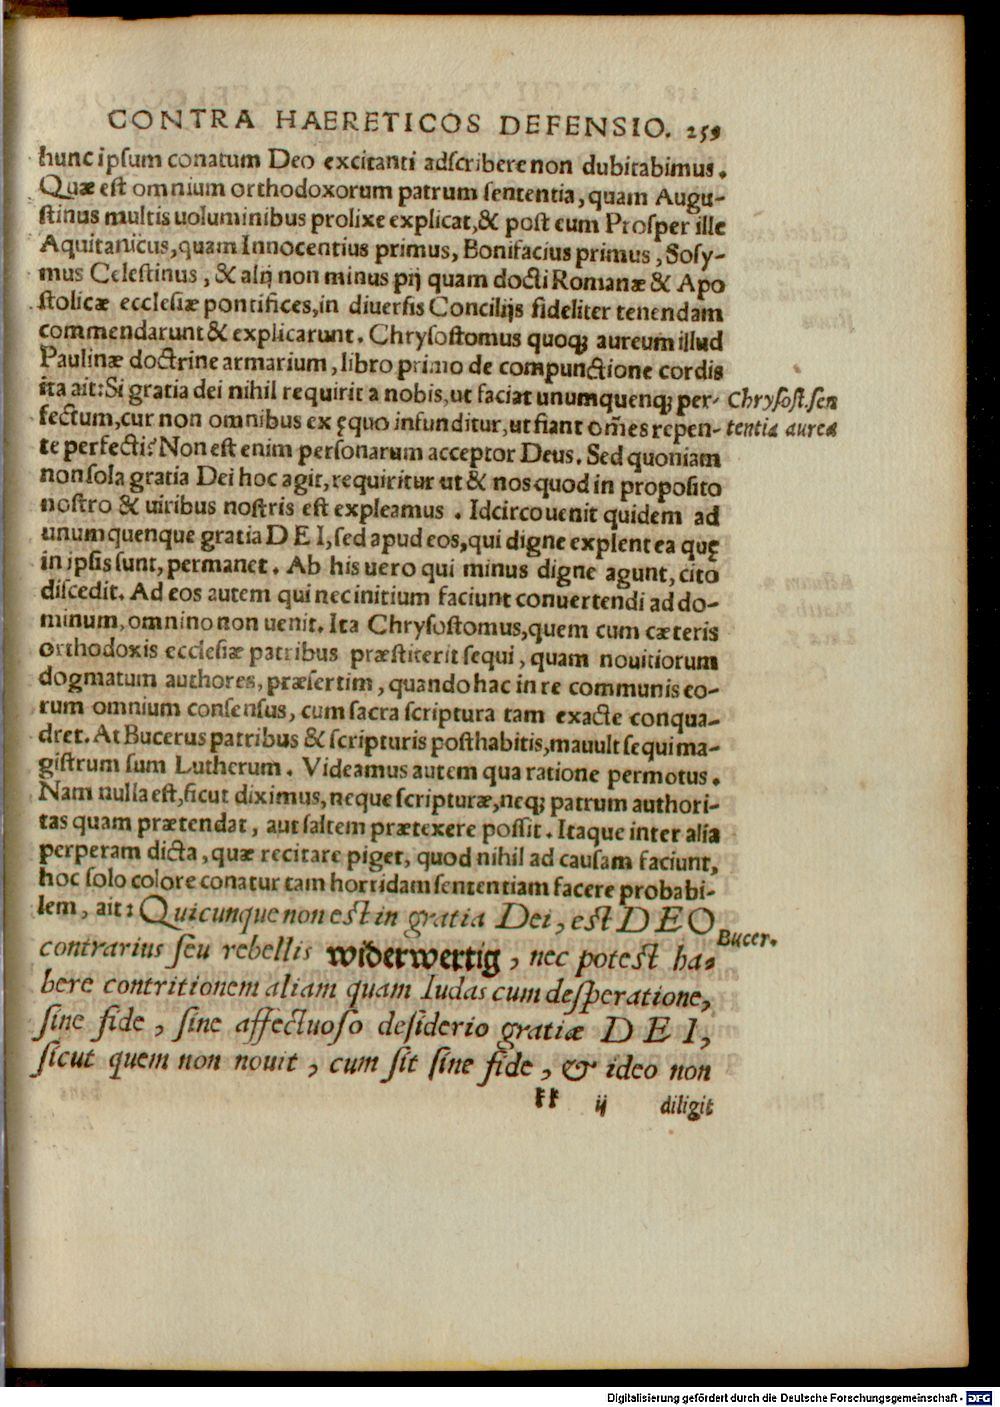 CONTRA HAERETICOS DEFENSIO. 259
hunc ipsum conatum Deo excitanti adscribere non dubitabimus.
Quæ est omnium orthodoxorum patrum sententia, quam Augu-
stinus multis uoluminibus prolixe explicat, & post eum Prosper ille
Aquitanicus, quam Innocentius primus, Bonifacius primus, Sosy-
mus Celestinus, & alij non minus pij quam docti Romanæ & Apo
stolicæ ecclesiæ pontifices, in diuersis Concilijs fideliter tenendam
commendarunt & explicarunt. Chrysostomus quoq; aureum illud
Paulinæ doctrine armarium, libro primo de compunctione cordis
ita ait: Si gratia dei nihil requirit a nobis, ut faciat unumquenq; per-
Chrysost. sen
fectum, cur non omnibus ex ęquo infunditur, ut fiant om̃es repen-
tentia aurea
te perfecti? Non est enim personarum acceptor Deus. Sed quoniam
non sola gratia Dei hoc agit, requiritur ut & nos quod in proposito
nostro & uiribus nostris est expleamus. Idcirco uenit quidem ad
unumquenque gratia DEI, sed apud eos, qui digne explent ea quę
in ipsis sunt, permanet. Ab his uero qui minus digne agunt, cito
discedit. Ad eos autem qui nec initium faciunt conuertendi ad do-
minum, omnino non uenit. Ita Chrysostomus, quem cum cæteris
orthodoxis ecclesiæ patribus præstiterit sequi, quam nouitiorum
dogmatum authores, præsertim, quando hac in re communis eo-
rum omnium consensus, cum sacra scriptura tam exacte conqua-
dret. At Bucerus patribus & scripturis posthabitis, mauult sequi ma-
gistrum sum Lutherum. Videamus autem qua ratione permotus.
Nam nulla est, sicut diximus, neque scripturæ, neq; patrum authori-
tas quam prætendat, aut saltem prætexere possit. Itaque inter alia
perperam dicta, quæ recitare piget, quod nihil ad causam faciunt,
hoc solo colore conatur tam horridam sententiam facere probabi-
lem, ait: Quicunque non est in gratia Dei, est DEO
Bucer.
contrarius seu rebellis widerwertig, nec potest ha-
bere contritionem aliam quam Iudas cum desperatione,
sine fide, sine affectuoso desiderio gratiæ DEI,
sicut quem non nouit, cum sit sine fide, & ideo non
kk ij diligit
Digitalisierung gefördert durch die Deutsche Forschungsgemeinschaft - DFG